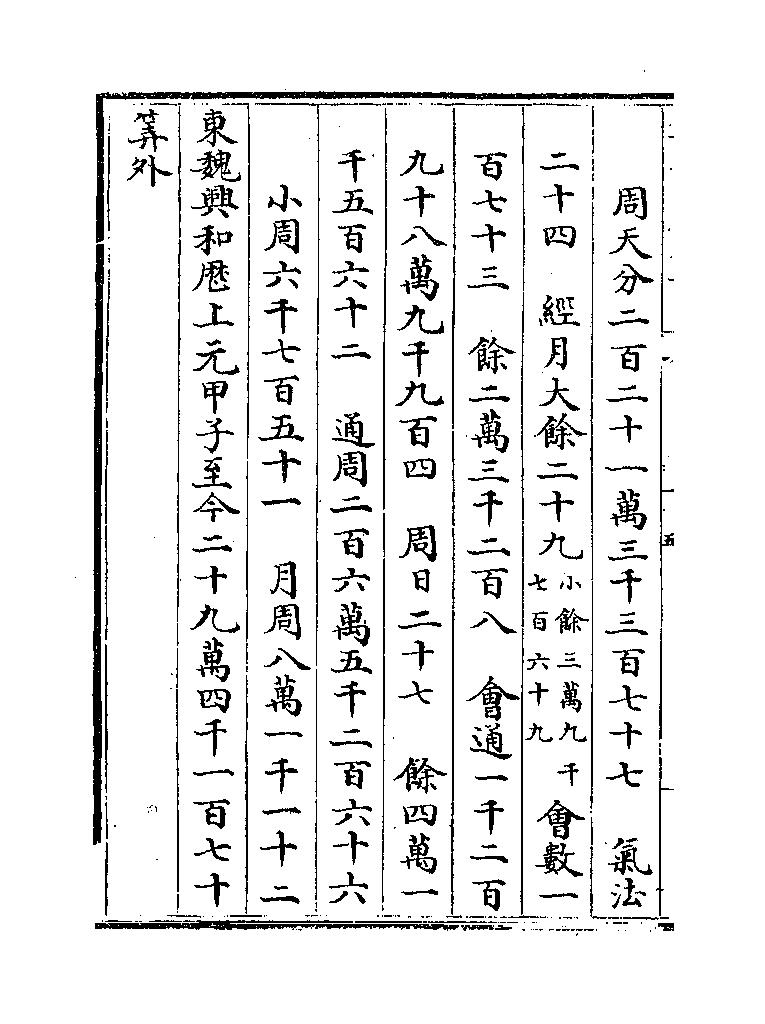 周天分二百二十一萬三千三百七十七　氣法
二十四　經月大餘二十九小餘三萬九千七百六十九　會數一
百七十三　餘二萬三千二百八　會通一千二百
九十八萬九千九百四　周日二十七　餘四萬一
千五百六十二　通周二百六萬五千二百六十六
小周六千七百五十一　月周八萬一千一十二
東魏興和厯上元甲子至今二十九萬四千一百七十
筭外
五